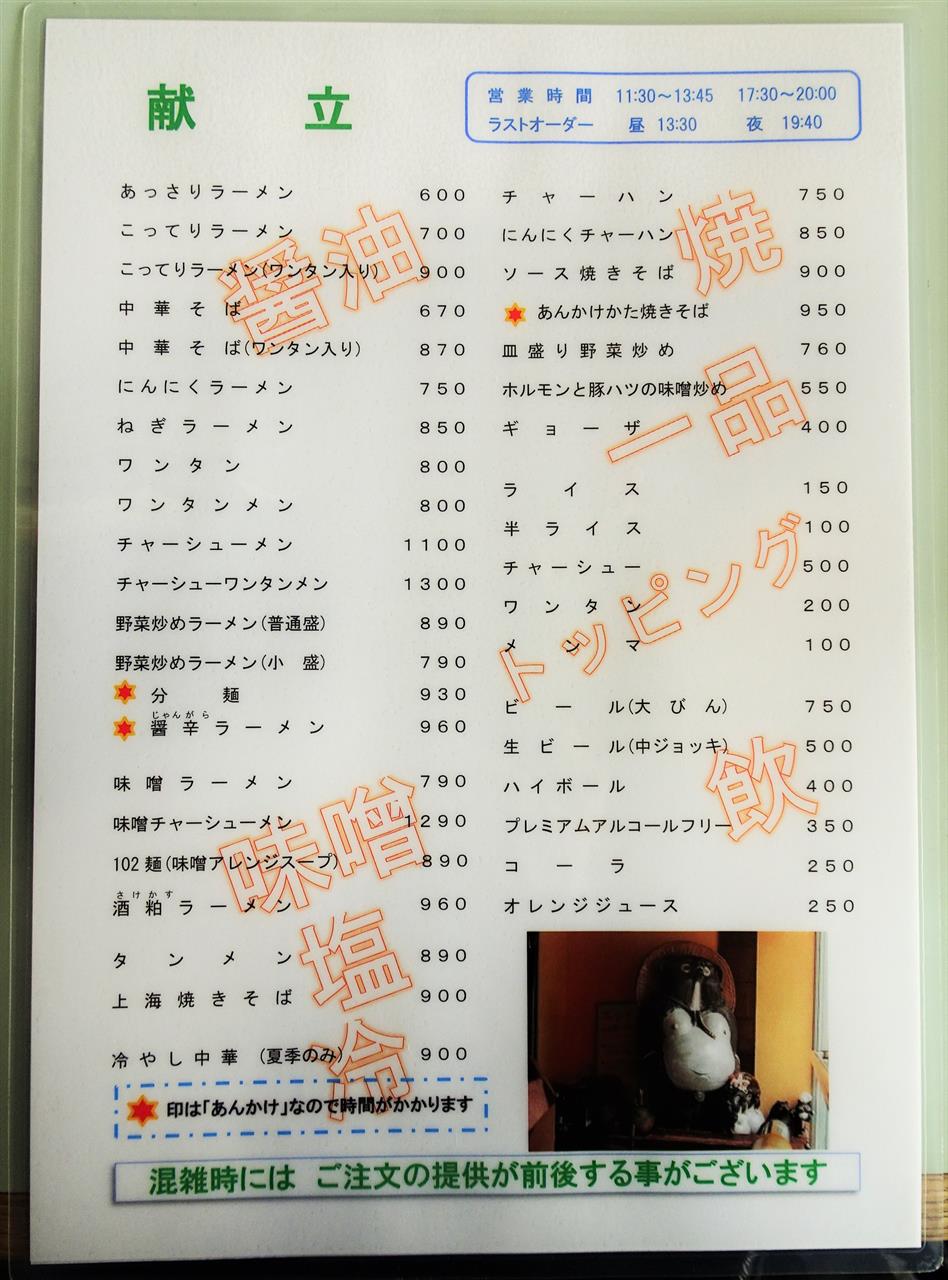 献立
営業時間 11:30～13:45 17:30～20:00
ラストオーダー 昼 13:30 夜 19:40
醤油
あっさりラーメン 600
こってりラーメン 700
こってりラーメン(ワンタン入り) 900
中華そば 670
中華そば(ワンタン入り) 870
にんにくラーメン 750
ねぎラーメン 850
ワンタン 800
ワンタンメン 800
チャーシューメン 1100
チャーシューワンタンメン 1300
野菜炒めラーメン(普通盛) 890
野菜炒めラーメン(小 盛) 790
分麺 930
じゃんがら
醤辛ラーメン 960
味噌
味噌ラーメン 790
味噌チャーシューメン 1290
102麺(味噌アレンジスープ) 890
さけかす
酒粕ラーメン 960
塩
タンメン 890
上海焼きそば 900
冷
冷やし中華 (夏季のみ) 900
印は「あんかけ」なので時間がかかります
焼
チャーハン 750
にんにくチャーハン 850
ソース焼きそば 900
あんかけかた焼きそば 950
一品
皿盛り野菜炒め 760
ホルモンと豚ハツの味噌炒め 550
ギョーザ 400
トッピング
ライス 150
半ライス 100
チャーシュー 500
ワンタン 200
メンマ 100
飲
ビール(大びん) 750
生ビール(中ジョッキ) 500
ハイボール 400
プレミアムアルコールフリー 350
コーラ 250
オレンジジュース 250
混雑時には ご注文の提供が前後する事がございます